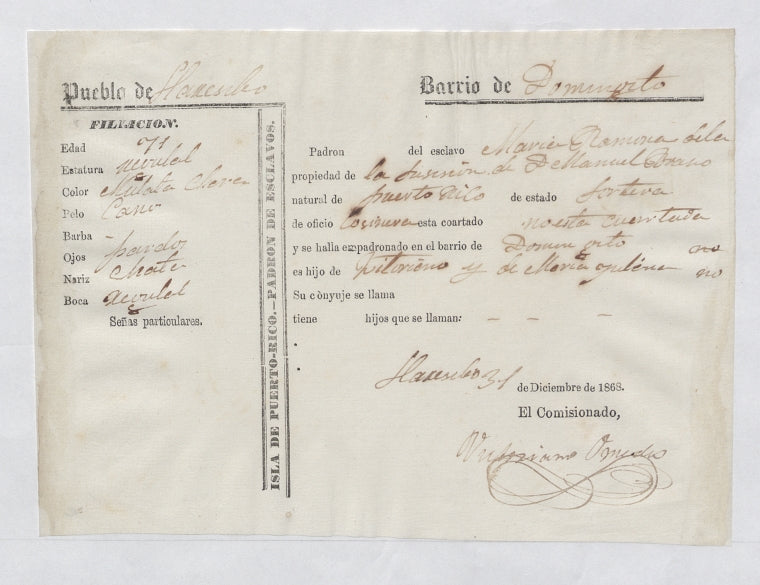 Pueblo de
Barrio de Domingito
FILIACION.
Edad 71
Estatura regulal
Color Mulata Clara
Pelo Cano
Barba -
Ojos pardos
Nariz Chata
Boca regulal
Señas particulares.
ISLA DE PUERTO-RICO.—PADRON DE ESCLAVOS.
Padron del esclavo Maria Ramona de la
propiedad de la susesion de D Manuel
natural de puerto Rico de estado sortera
de oficio Cosinera esta coartado no esta cuartada
y se halla empadronado en el barrio de Domingito
es hijo de y de Maria no
no
Su cònyuje se llama
tiene hijos que se llaman: - - -
31 de Diciembre de 1868.
El Comisionado,